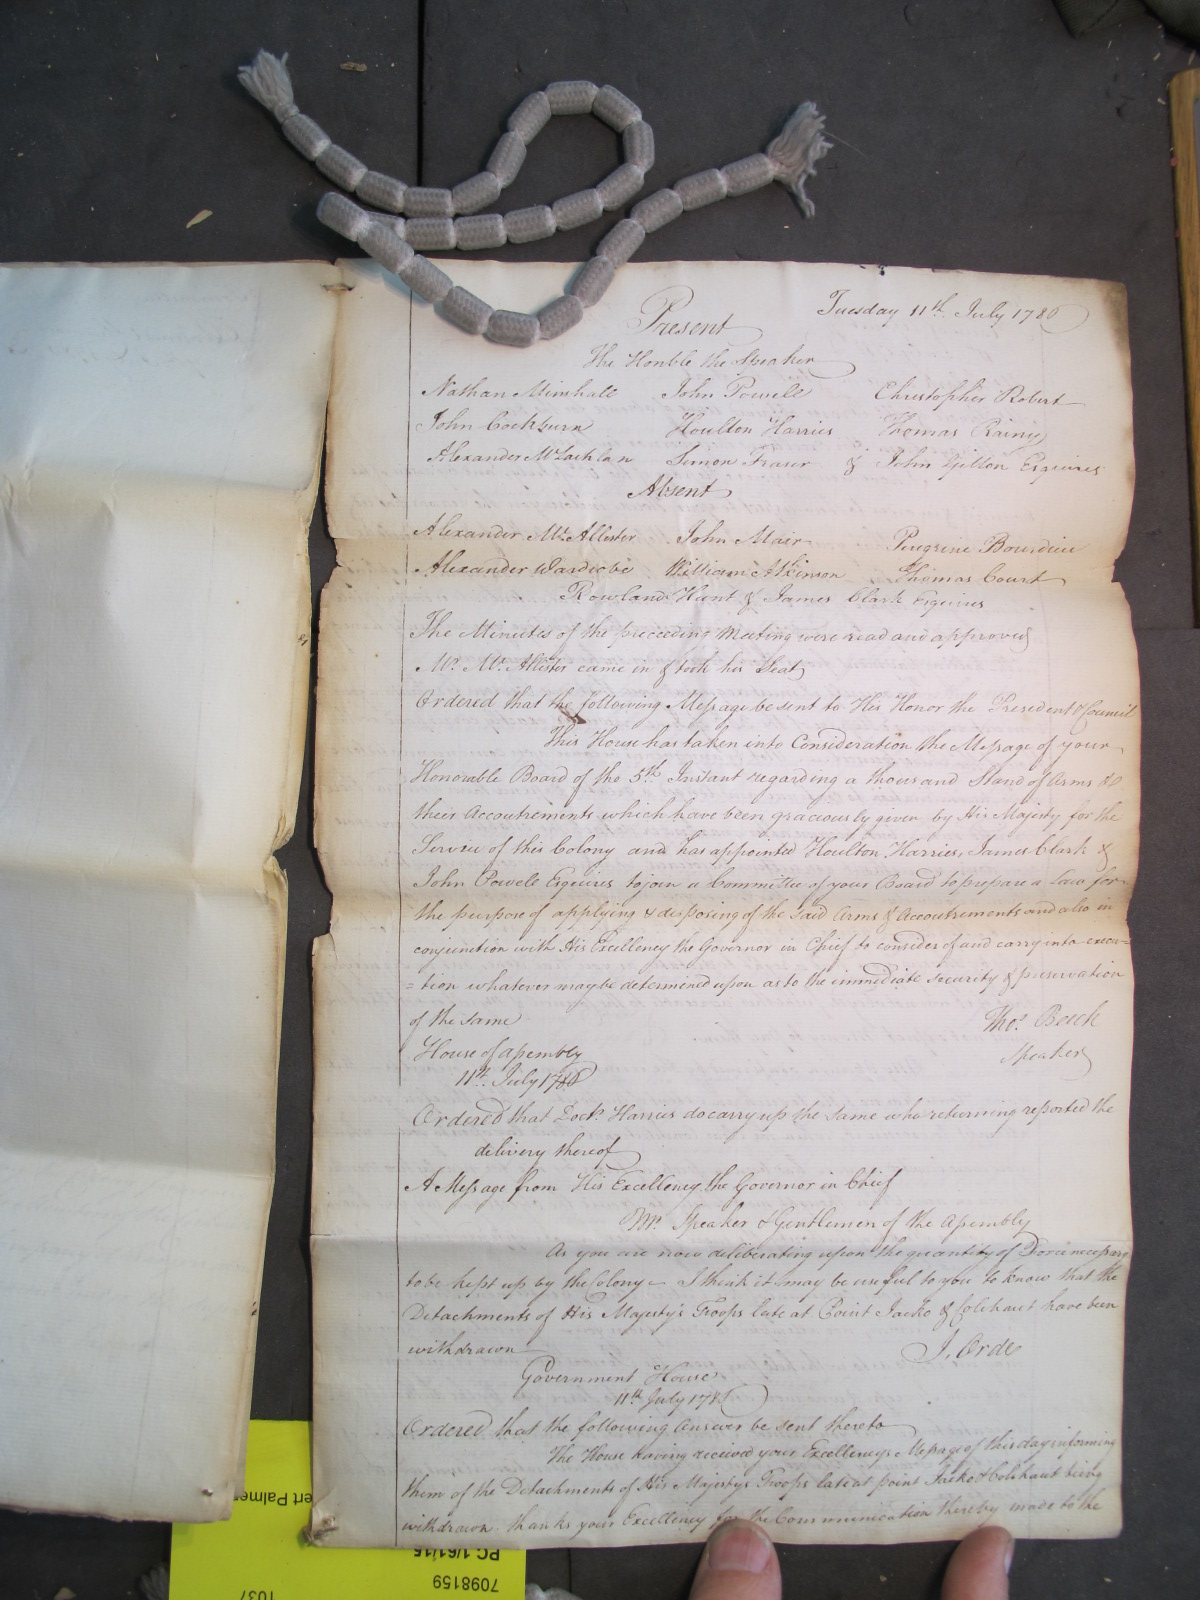 Tuesday 11th July 1786
Present
The Honble the Speaker
Nathan Mimhall John Powell Christopher Robert
John Cockburn Houlton Harries Thomas Rainy
Alexander McLachlan Simon Fraser & John Gillon Esquires
Absent
Alexander Mc Allester John Mair Peregrine Bourdieu
Alexander Wardrobe William Atkinson Thomas Court
Rowland Hunt & James Clark Esquires
The Minutes of the preceeding Meeting were read and approved
Mr. Mc Allester came in & took his Seat
Ordered that the following Message be sent to His Honor the President & Council
This House has taken into Consideration the Message of your
Honorable Board of the 5th Instant regarding a thousand Stand of Arms &
their Accoutrements which have been graciously given by His Majesty for the
Service of this Colony and has appointed Houlton Harries, James Clark &
John Powell Esquires to join a Committee of your Board to prepare a Law for
the purpose of applying & disposing of the said Arms & Accoutrements and also in
conjunction with His Excellency the Governor in Chief to consider of and carry into execu=
=tion whatever may be determined upon as to the immediate security & preservation
of the same
Thos. Beech
Speaker
House of Assembly
11th July 1786
Ordered that Doctr. Harries do carry up the same who returning reported the
delivery thereof
A Message from His Excellency the Governor in Chief
Mr. Speaker & Gentlemen of the Assembly
As you are now deliberating upon the quantity of Force necessary
to be kept up by the Colony I think it may be useful to you to know that the
Detachments of His Majesty's Troops late at Point Jacko & Colihaut have been
withdrawn
J. Orde
Government House
11th July 1786
Ordered that the following Answer be sent thereto
The House having received your Excellencys Message of this day informing
them of the Detachments of His Majestys Troops late at point Jacko & Colihaut being
withdrawn thanks your Excellency for the Communication thereby made to the
ert Palmer
PC 1/61/15
7098159
1037